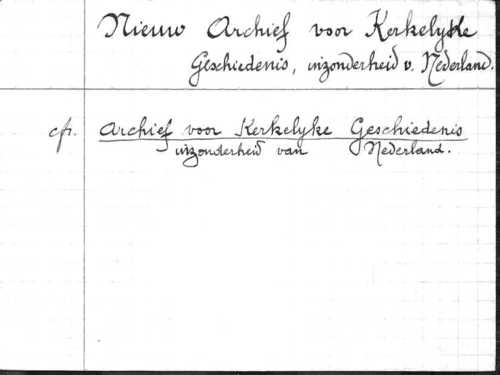 Nieuw Archief voor Kerkelyke
Geschiedenis, inzonderheid v. Nederland.
cfr. Archief voor Kerkelyke Geschiedenis
inzonderheid van Nederland.